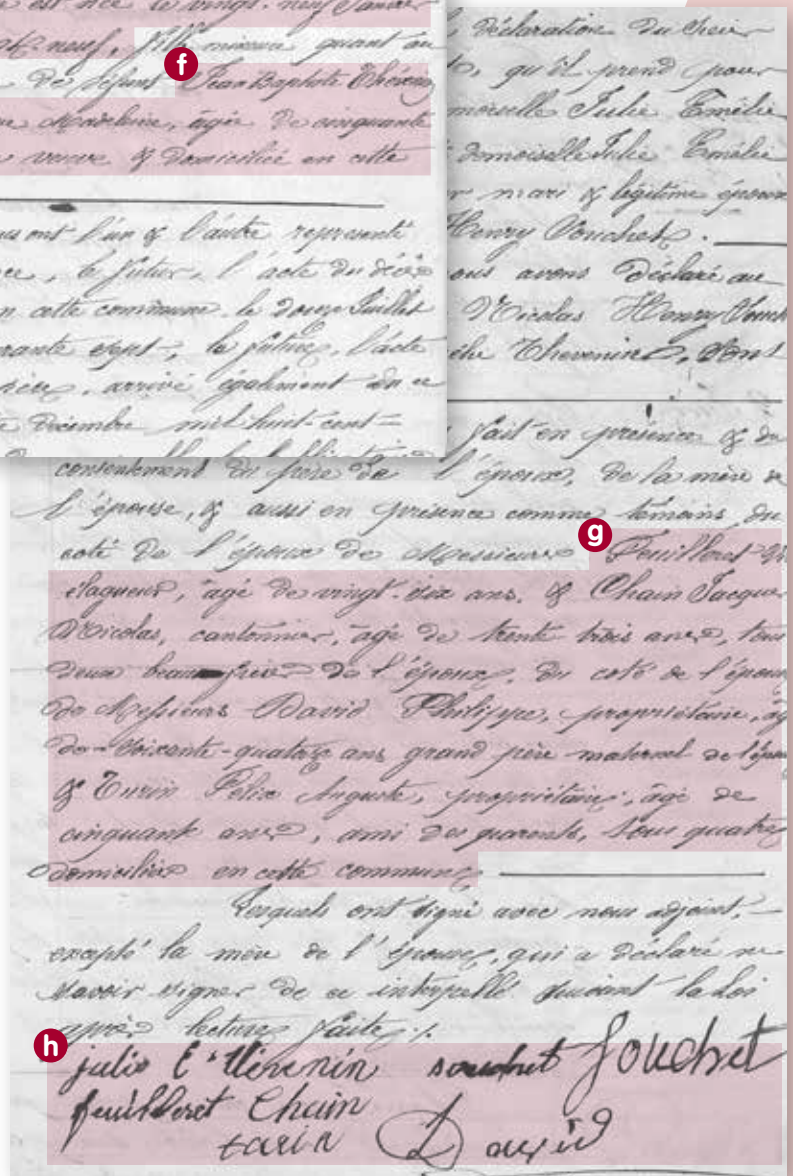 est née le vingt-neuf Janvier
neuf, fille mineure quant au
f
de défunt Jean Baptiste Thévenin
Madeleine, âgée de cinquante
veuve & domiciliée en cette
ont l'un & l'autre représenté
le futur, l'acte du décès
en cette commune le douze Juillet
sept, la future, l'acte
père, arrivé également en ce
Décembre mil huit-cent-
déclaration du Sieur
qu'il prend pour
Julie Emélie
demoiselle Julie Emélie
mari & légitime époux
Henry Souchet.
avons déclaré au
Nicolas Henry
Thevenin, sont
fait en présence & du
consentement du frère de l'époux, de la mère de
l'épouse, & aussi en présence comme témoins, du
g
coté de l'époux de Messieurs Feuilleret
élagueur, âgé de vingt-six ans, & Chain Jacques
Nicolas, cantonnier, âgé de trente trois ans, tous
deux beau-frère de l'époux, du coté de l'épouse
de Messieurs David Philippe, propriétaire,
de soixante-quatorze ans grand père maternel de
& Turin Félix Auguste, propriétaire, âgé de
cinquante ans, ami des parents, tous quatre
domiciliés en cette commune,
Lesquels ont signé avec nous adjoint,
excepté la mère de l'épouse, qui a déclaré ne
savoir signer de ce interpellé suivant la loi
après lecture faite ;.
h
julie souchet Souchet
feuilleret Chain
turin David